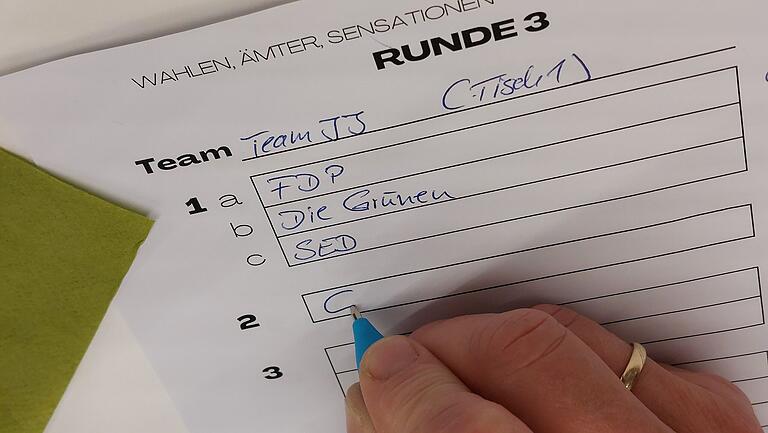 WAHLEN, ÄMTER, SENSATIONEN
RUNDE 3
Team Team JJ (Tisch 1)
1 a FDP
b Die Grünen
c SED
2 C
3